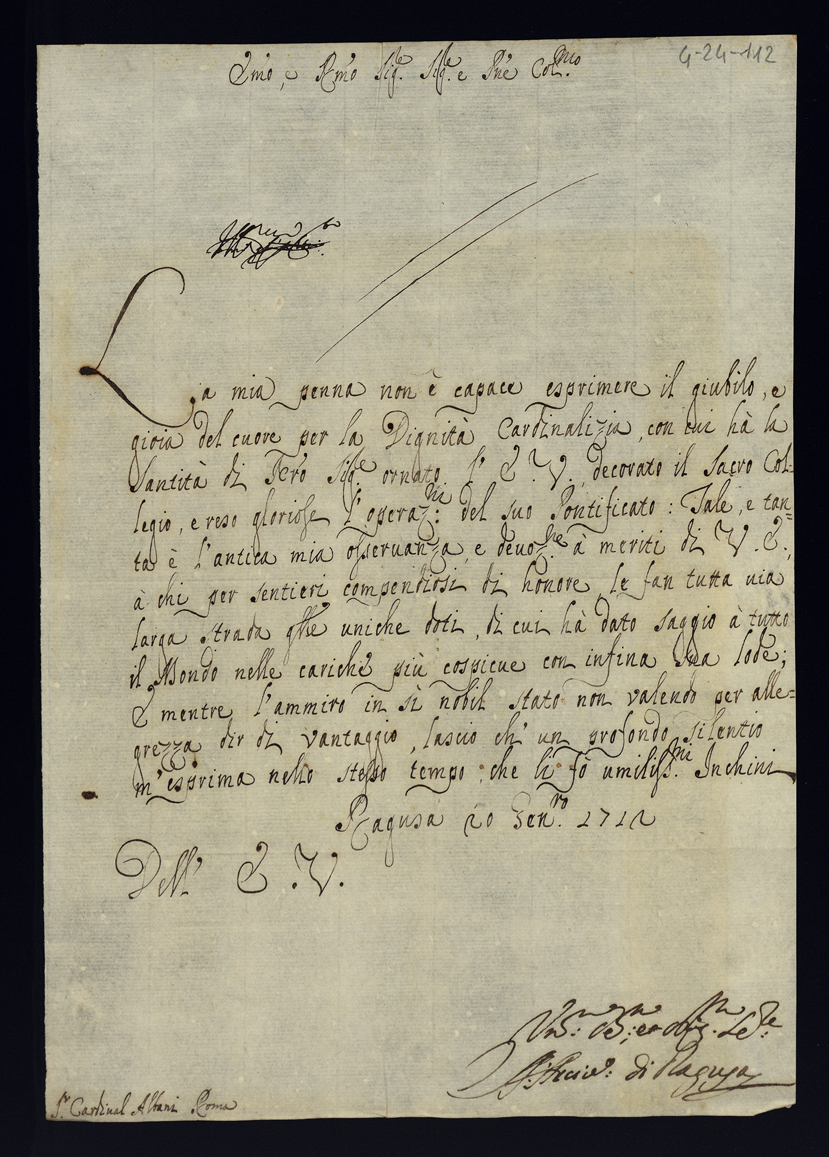 4-24-112
Emo, e Rmo Sigre. Sigre. e Pne Colmo.
La mia penna non è capace esprimere il giubilo, e
gioia del cuore per la Dignità Cardinalizia, con cui hà la
Santità di Sigre ornato l' E. V., decorato il Sacro Col-
legio, e reso gloriose l'operaz.ni del suo Pontificato: Tale, e tan=
ta è l'antica mia osservanza, e devoz.ne à meriti di V. E.,
à chi per sentieri compendiosi di honore, le fan tutta via
larga strada uniche doti, di cui hà dato saggio à tutto
il Mondo nelle cariche più cospicue con infinita sua lode;
E mentre l'ammiro in sì nobil stato non valendo per alle=
grezza dir di vantaggio, lascio ch' un profondo silentio
m'esprima nello stesso tempo, che li fò umiliss.mi Inchini
Ragusa 20 Gen.ro 1712
Dell' E. V.
di Ragusa
Sr. Cardinal Albani Roma